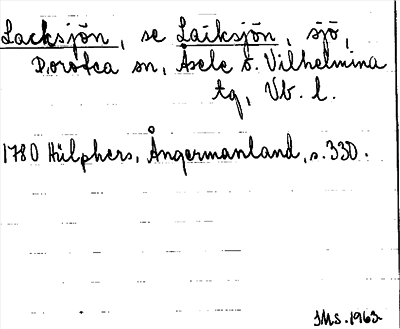 Lacksjön, se Laiksjön, sjö,
Dorotea sn, Åsele o. Vilhelmina
tg, Vb. l.
1780 Hülphers, Ångermanland, s. 330.
JMS. 1963